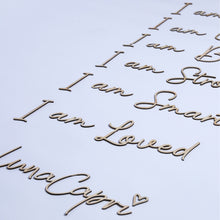 I am
I am
I am
I am Stro
I am Smart
I am Loved
LunaCapri♡